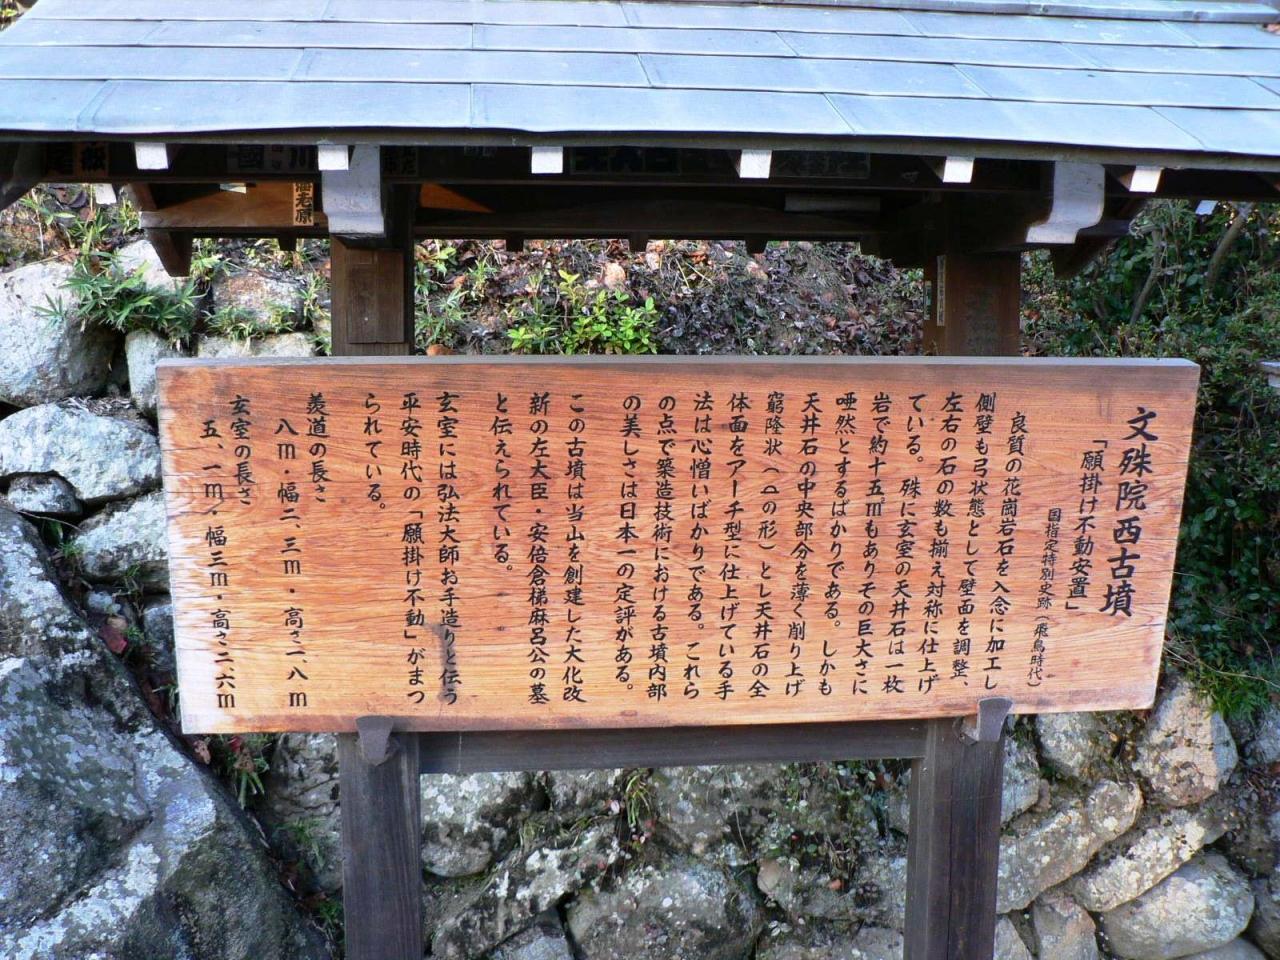 文殊院西古墳
「願掛け不動安置」
国指定特別史跡(飛鳥時代)
良質の花崗岩石を入念に加工し
側壁も弓状態として壁面を調整、
左右の石の数も揃え対称に仕上げ
ている。殊に玄室の天井石は一枚
岩で約十五㎡もありその巨大さに
唖然とするばかりである。しかも
天井石の中央部分を薄く削り上げ
窮隆状(⌓の形)とし天井石の全
体面をアーチ型に仕上げている手
法は心憎いばかりである。これら
の点で築造技術における古墳内部
の美しさは日本一の定評がある。
この古墳は当山を創建した大化改
新の左大臣・安倍倉梯麻呂公の墓
と伝えられている。
玄室には弘法大師お手造りと伝う
平安時代の「願掛け不動」がまつ
られている。
羨道の長さ
八m・幅二、三m・高さ二、八m
玄室の長さ
五、一m・幅三m・高さ二、六m
海老原